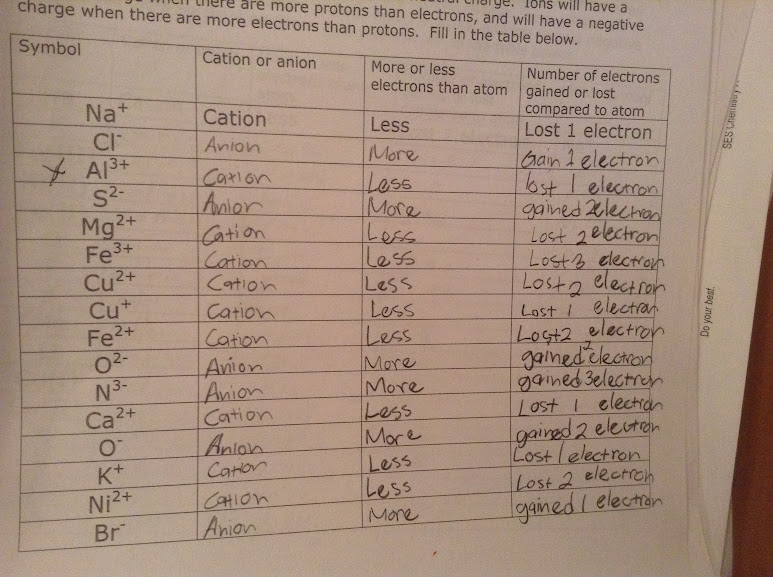 Ions will have a
there are more protons than electrons, and will have a negative
charge when there are more electrons than protons. Fill in the table below.
Symbol Cation or anion More or less Number of electrons
electrons than atom gained or lost
compared to atom
Na⁺ Cation Less Lost 1 electron
Cl⁻ Anion More Gain 1 electron
Al³⁺ Cation Less lost 1 electron
S²⁻ Anion More gained 2electron
Mg²⁺ Cation Less Lost 2 electron
Fe³⁺ Cation Less Lost 3 electron
Cu²⁺ Cation Less Lost 2 electron
Cu⁺ Cation Less Lost 1 electron
Fe²⁺ Cation Less Lost 2 electron
O²⁻ Anion More gained 2 electron
N³⁻ Anion More gained 3electron
Ca²⁺ Cation Less Lost 1 electron
O⁻ Anion More gained 2 electron
K⁺ Cation Less Lost 1 electron
Ni²⁺ Cation Less Lost 2 electron
Br⁻ Anion More gained 1 electron
SES Chemistry
Do your best.